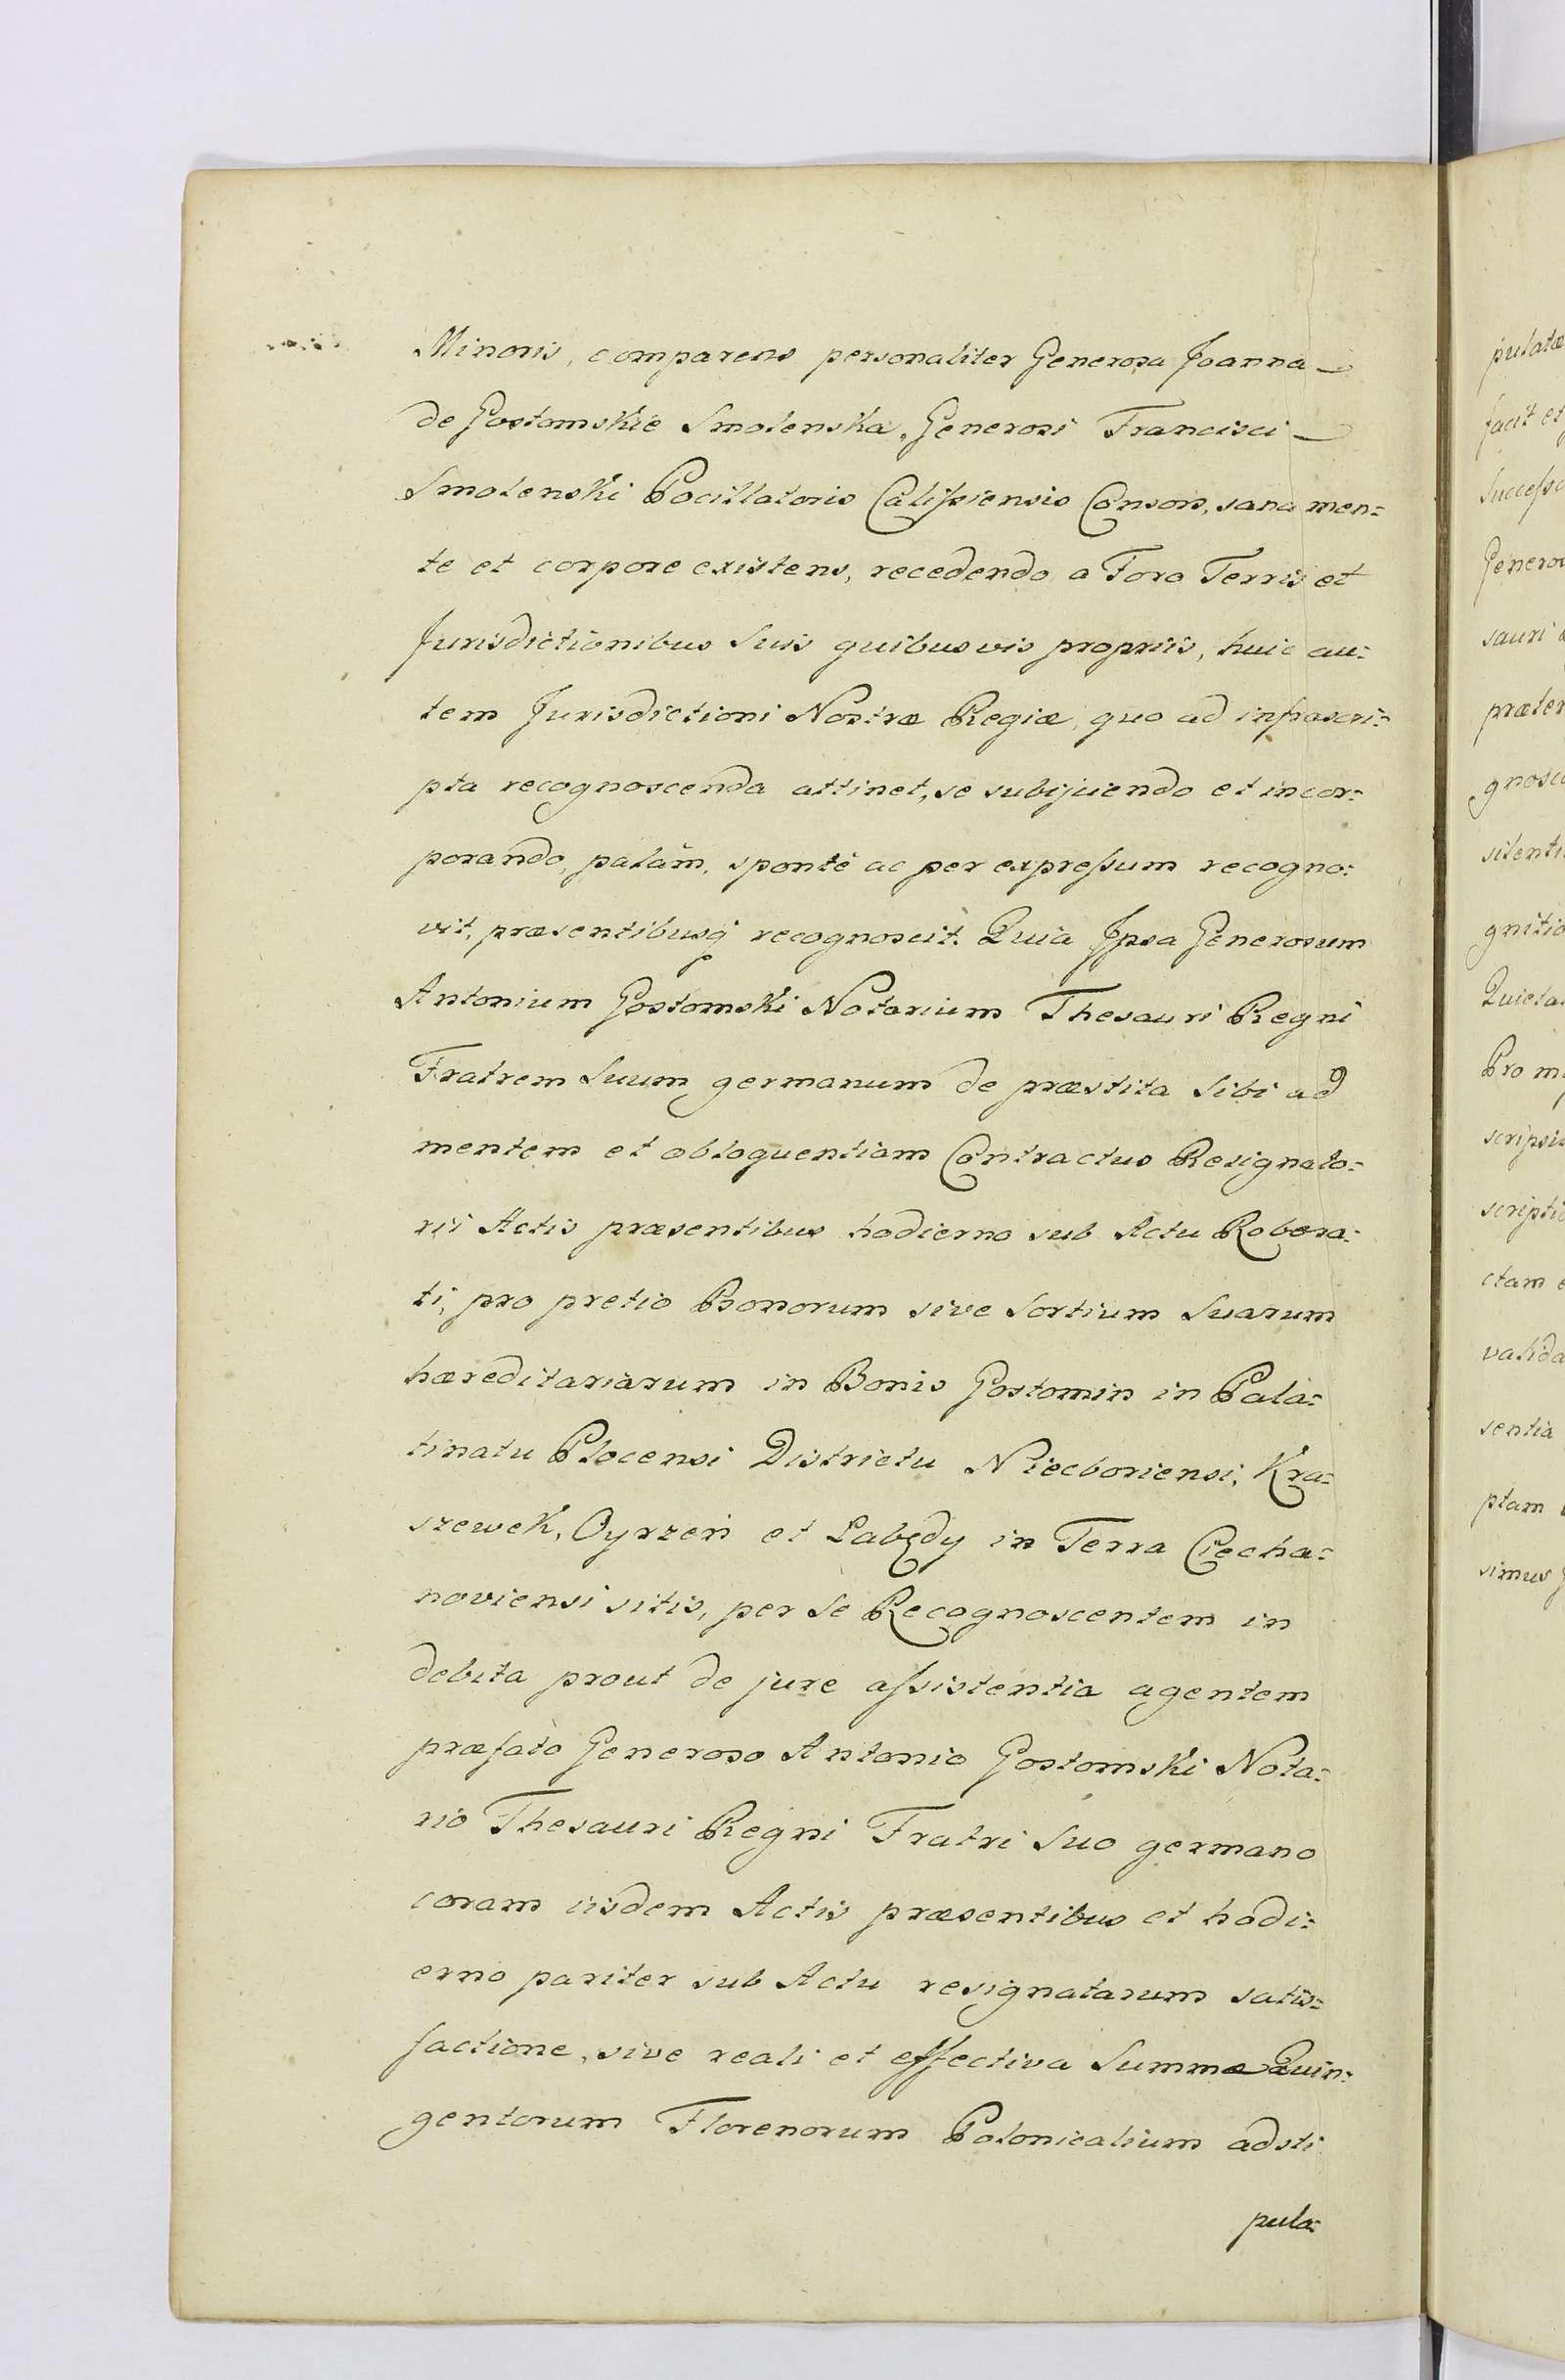 Minoris, comparens personaliter Generosa Joanna
de Gostomskie Smolenska, Generosi Francisci
Smolenski Pocillatoris Calissiensis Consors, sana men:
te et corpore existens, recedendo a Foro Terris et
Jurisdictionibus Suis quibusvis propriis, huic au:
tem Jurisdictioni Nostræ Regiæ, quo ad infrascri:
pta recognoscenda attinet, se subijciendo et incor:
porando, palàm, spontè ac per expressum recogno:
vit, præsentibusq recognoscit. Quia Ipsa Generosum
Antonium Gostomski Notarium Thesauri Regni
Fratrem Suum germanum de præstita Sibi ad
mentem et obloquentiam Contractus Resignato:
rii Actis præsentibus hodierno sub Actu Robora:
ti, pro pretio Bonorum sive Sortium Suarum
hæreditariarum in Bonis Gostomin in Pala:
tinatu Plocensi Districtu Niecboriensi, Kra:
szewek, Oyrzeń et Łabędy in Terra Ciecha:
noviensi sitis, per Se Recognoscentem in
debita prout de jure assistentia agentem
præfato Generoso Antonio Gostomski Nota:
rio Thesauri Regni Fratri Suo germano
coram iisdem Actis præsentibus et hodi:
erno pariter sub Actu resignatarum satis:
factione, sive reali et effectiva Summæ Quin:
gentorum Florenorum Polonicalium adsti
pula:
pulatæ
facit et
Successo
Generos
sauri
præter
gnosc
silenti
gnitio
Quieta
Pro m
scripsi
scriptio
ctam
valida
sentia
ptam
simus